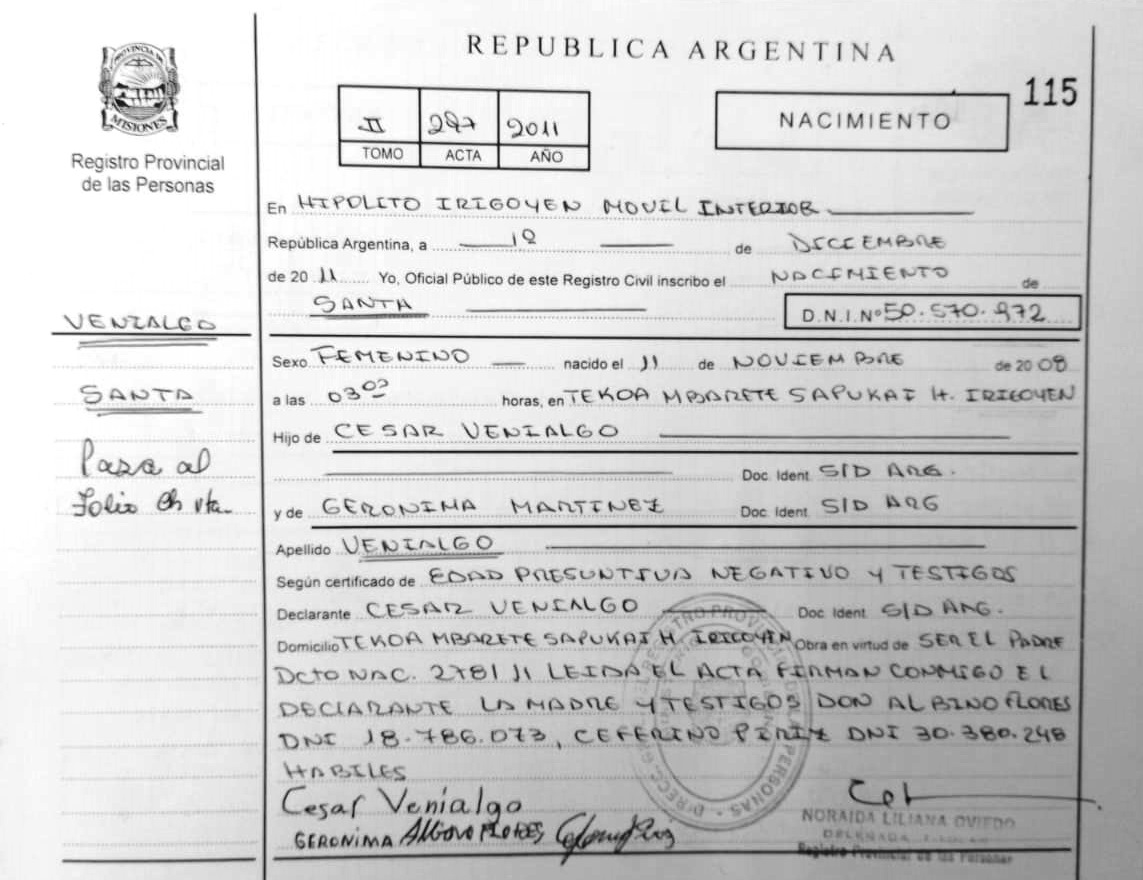 REPUBLICA ARGENTINA
115
PROVINCIA DE
MISIONES
Registro Provincial
de las Personas
II 287 2011
TOMO ACTA AÑO
NACIMIENTO
En HIPOLITO IRIGOYEN MOVIL INTERIOR
República Argentina, a de DICIEMBRE
de 20 11 Yo, Oficial Público de este Registro Civil inscribo el NACIMIENTO de
SANTA D.N.I.Nº 50.570.972
VENIALGO
SANTA
Pasa al
Folio
Sexo FEMENINO nacido el 11 de NOVIEMBRE de 20 08
a las 03 00 horas, en TEKOA MBARETE SAPUKAI H. IRIGOYEN
Hijo de CESAR VENIALGO
Doc. Ident S/D ARG.
y de GERONIMA MARTINEZ Doc. Ident S/D ARG
Apellido VENIALGO
Según certificado de EDAD PRESUNTIVA NEGATIVO Y TESTIGOS
Declarante CESAR VENIALGO Doc. Ident S/D ARG.
Domicilio TEKOA MBARETE SAPUKAI H. IRIGOYEN Obra en virtud de SER EL PADRE
DCTO NAC. 278/11 LEIDA EL ACTA FIRMAN CONMIGO EL
DECLARANTE LA MADRE Y TESTIGOS DON ALBINO FLORES
DNI 18.786.073, CEFERINO PIRIZ DNI 30.380.248
HABILES
Cesar Venialgo
GERONIMA Albino FLORES
NORAIDA LILIANA OVIEDO
Registro Provincial de las Personas